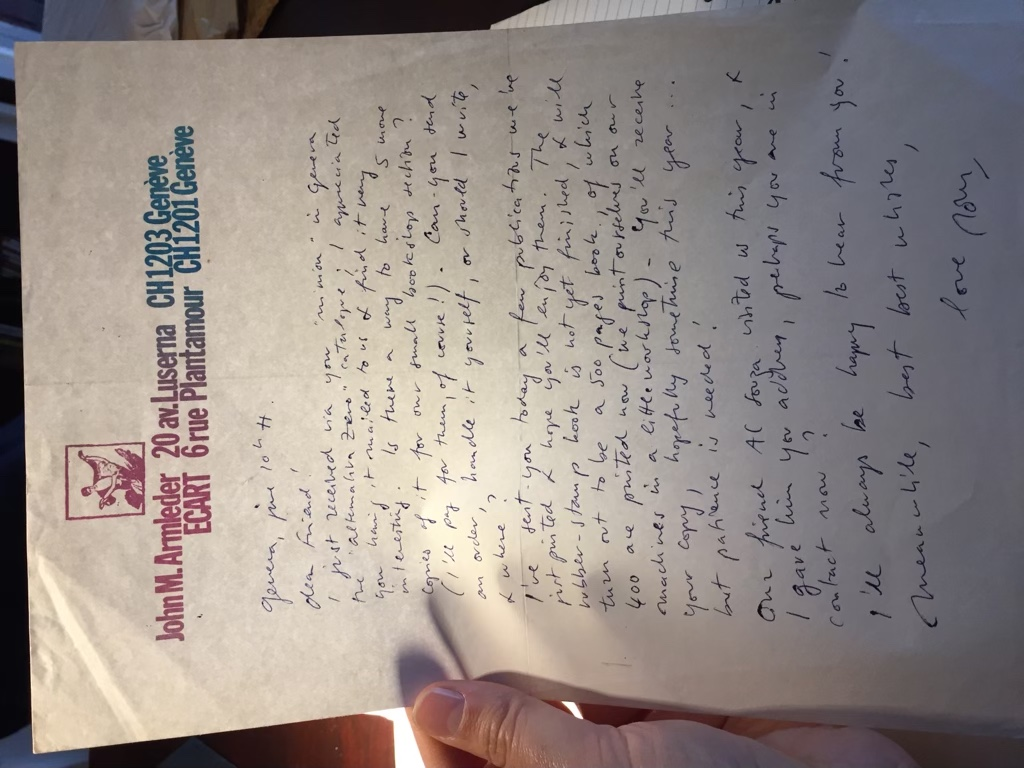 John M. Armleder 20 av. Luserna CH1203 Genève
ECART 6 rue Plantamour CH1201 Genève
Geneva, june 10th
dear friend,
I just received via your "mission" in Geneva
the "alternativa zero" catalogue; I appreciated
you having it mailed to us & find it very
interesting. Is there a way to have 5 more
copies of it for our small bookshop section?
(I'll pay for them, of course!). Can you send
an order, handle it yourself, or should I write,
& where?
I've sent you today a few publications we've
just printed & hope you'll enjoy them. The
rubber-stamp book is not yet finished, & will
turn out to be a 500 pages book, of which
400 are printed now (we print ourselves on our
machines in a little workshop) - You'll receive
your copy, hopefully sometime this year ...
but patience is needed!
Our friend Al Souza visited us this year, &
I gave him your address, perhaps you are in
contact now?
I'll always be happy to hear from you!
Meanwhile, best best wishes,
love John